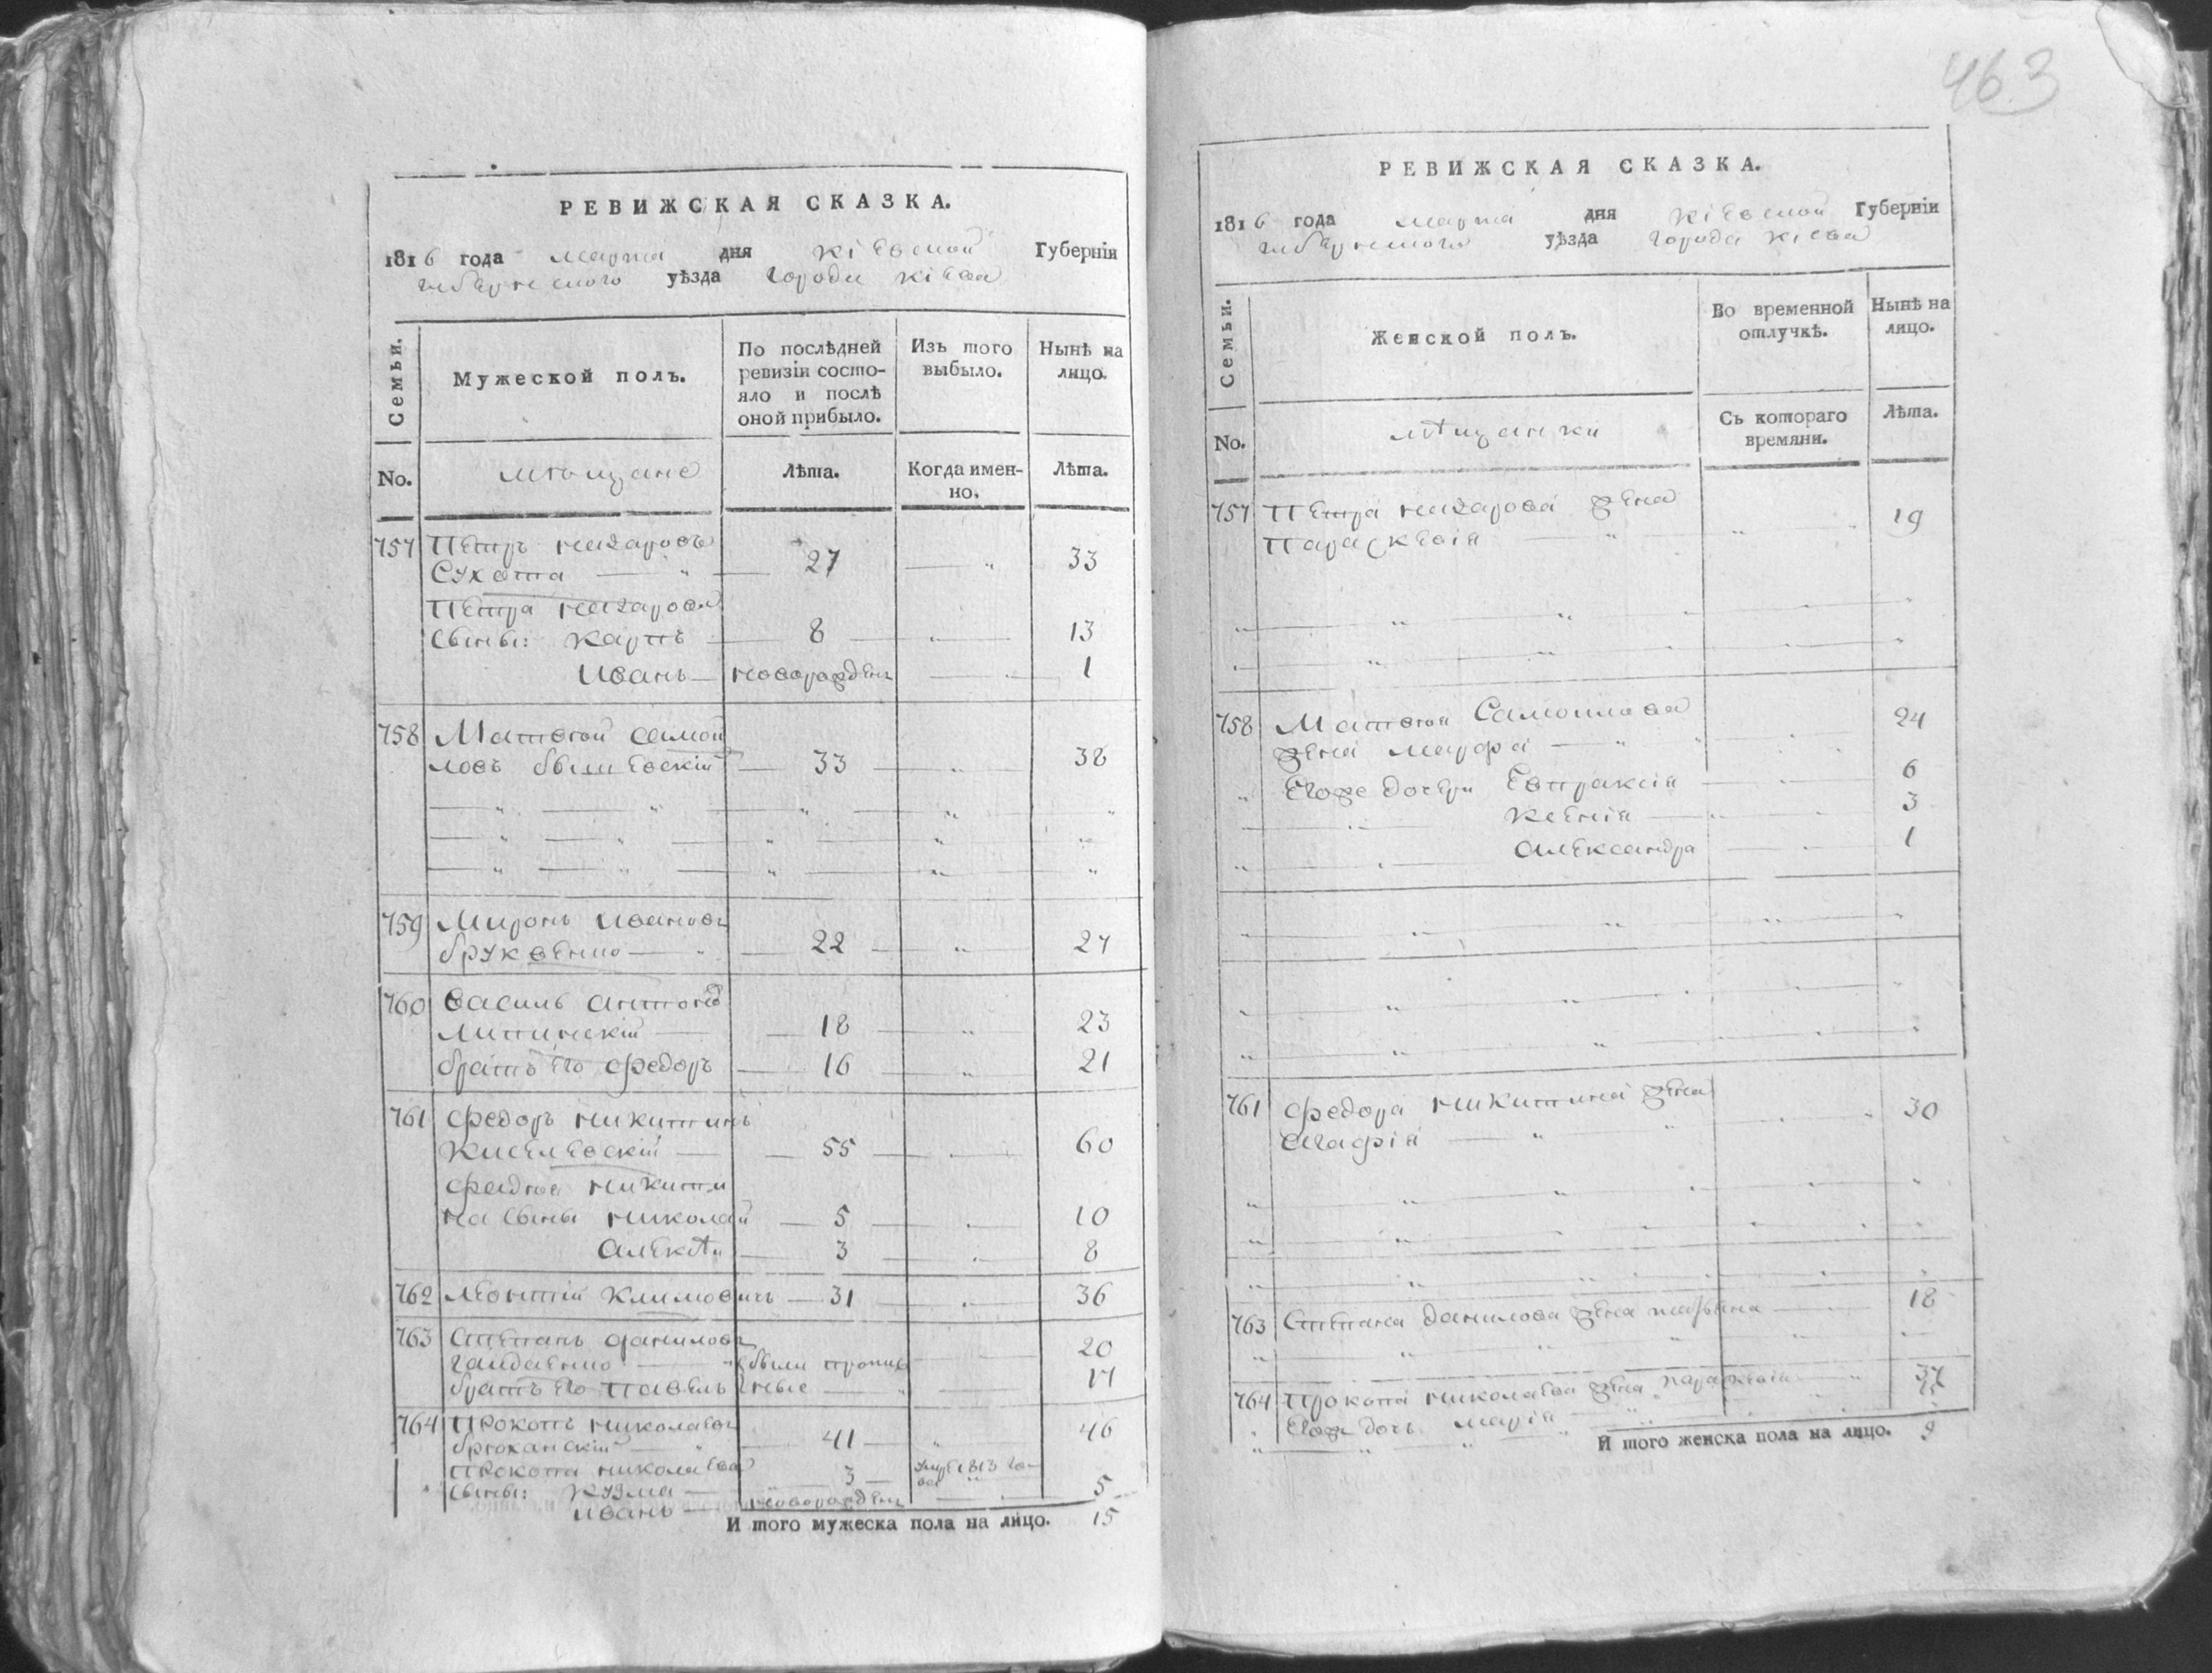 463
РЕВИЖСКАЯ СКАЗКА.
1816 года марта дня Кіевской Губерніи
губернского уѣзда города Кіева
Семьи.
Мужеской полъ.
По послѣдней ревизіи состо-
яло и послѣ
оной прибыло.
Изъ того
выбыло.
Нынѣ на
лицо.
No.
мѣщане
Лѣта.
Когда имен-
но.
Лѣта.
757 Петръ Назаровъ
Сухота 27 33
Петра Назарова
сыны: Карпъ 8 13
Иванъ новорожден 1
758 Матвей Самой
ловъ 33 38
759 Миронъ Ивановъ
22 27
760 Василь Антонов
Липинскій 18 23
братъ его Федоръ 16 21
761 Федоръ Никитинъ
Киселевскій 55 60
Федора Никити
на сыны Николай 5 10
Алексѣи 3 8
762 Леонтій Климовичъ 31 36
763 Степанъ Даниловъ
Гайдаенко были пропис 20
братъ его Павелъ ные 17
764 Прокопъ Николаевъ
Брюханскій 41 46
Прокопа Николаева
сыны: Кузма 3 умре 1813 го
Иванъ новорожден 5
И того мужеска пола на лицо. 15
РЕВИЖСКАЯ СКАЗКА.
1816 года марта дня Кіевской Губерніи
губернского уѣзда города Кіева
Семьи.
Женской полъ.
Во временной
отлучкѣ.
Нынѣ на
лицо.
No.
мѣщанки
Съ котораго
времяни.
Лѣта.
757 Петра Назарова жена
Параскевія 19
758 Матвея Самоилова
жена Марфа 24
Егоже дочери Евпраксія 6
Ксенія 3
Александра 1
761 Федора Никитина жена
Агафія 30
763 Степана Данилова жена Марьяна 18
764 Прокопа Николаева жена Параскевія 37
Егоже дочь Марія
И того женска пола на лицо. 9